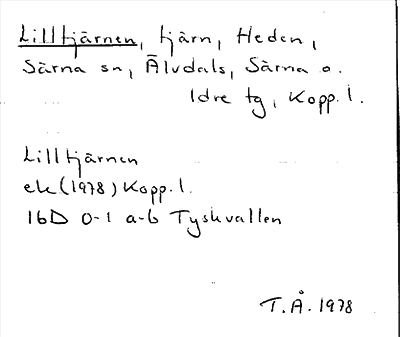 Lilltjärnen, tjärn, Heden,
Särna sn, Älvdals, Särna o.
Idre tg, Kopp. l.
Lilltjärnen
ek (1978) Kopp. l.
16D 0-1 a-b Tyskvallen
T.Å. 1978